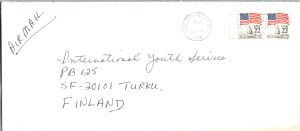 AIR MAIL
International Youth Service
PB 125
SF-20101 TURKU,
FINLAND